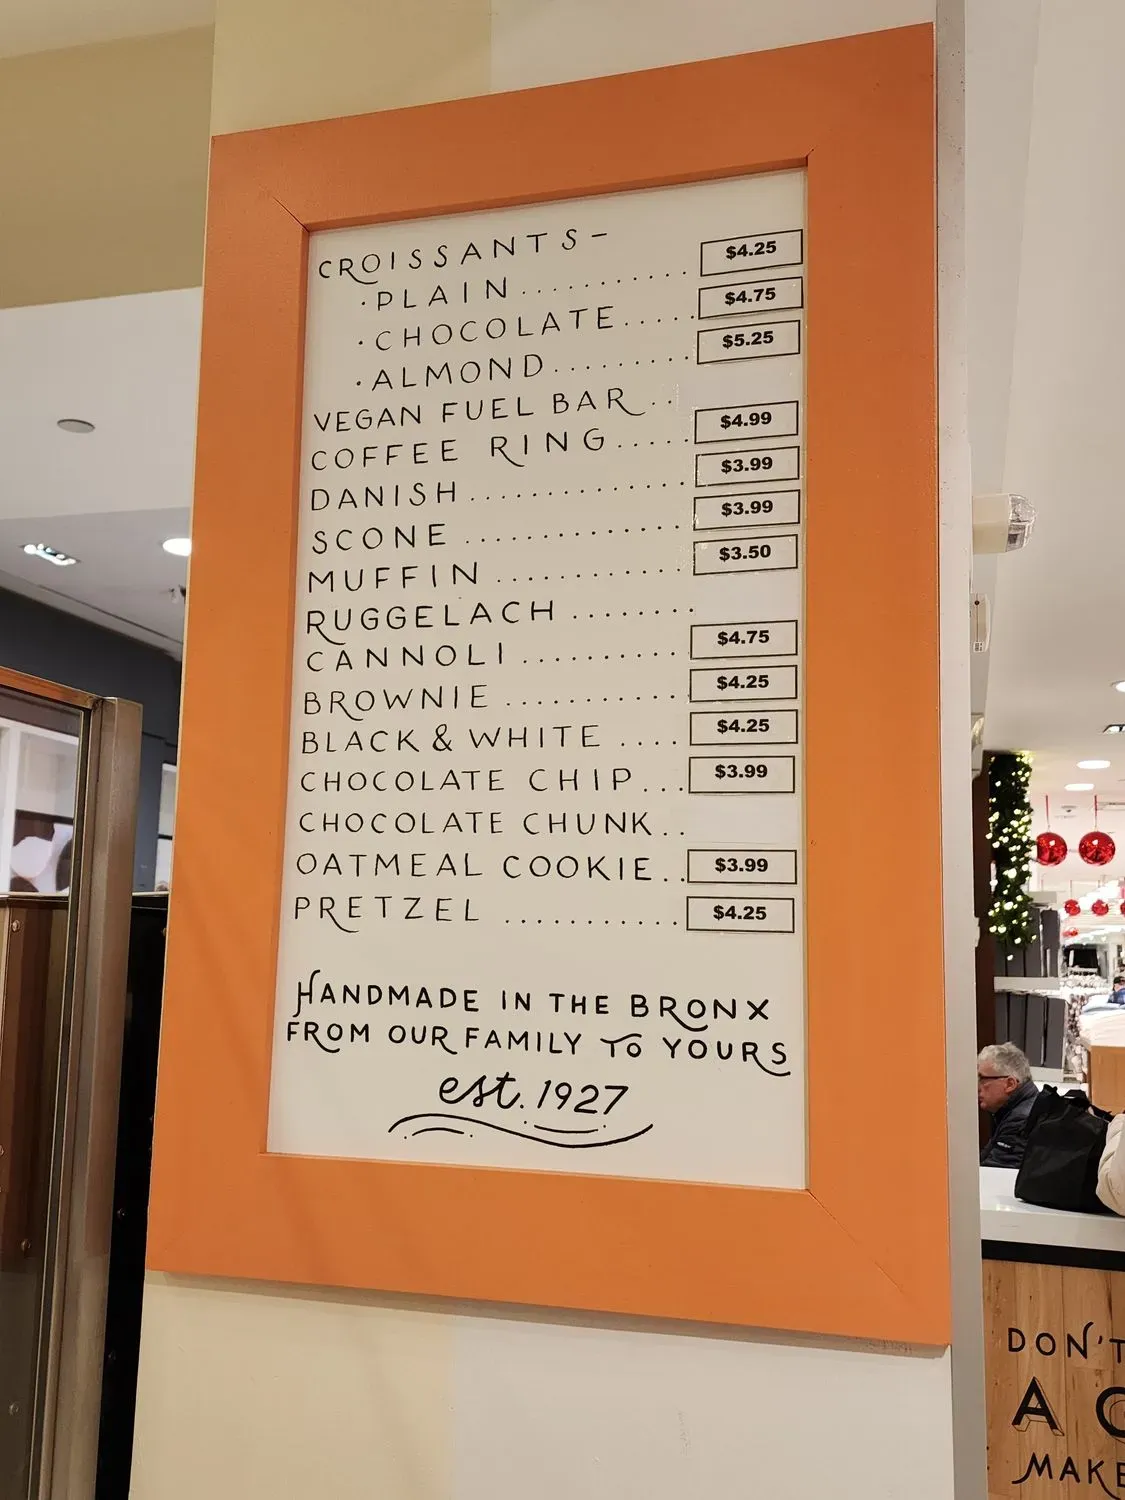 CROISSANTS–
·PLAIN.......... $4.25
·CHOCOLATE..... $4.75
·ALMOND........ $5.25
VEGAN FUEL BAR..
COFFEE RING..... $4.99
DANISH............. $3.99
SCONE............. $3.99
MUFFIN............ $3.50
RUGGELACH........
CANNOLI.......... $4.75
BROWNIE........... $4.25
BLACK & WHITE.... $4.25
CHOCOLATE CHIP... $3.99
CHOCOLATE CHUNK..
OATMEAL COOKIE.. $3.99
PRETZEL........... $4.25
HANDMADE IN THE BRONX
FROM OUR FAMILY TO YOURS
est. 1927
DON'T
A
MAKE